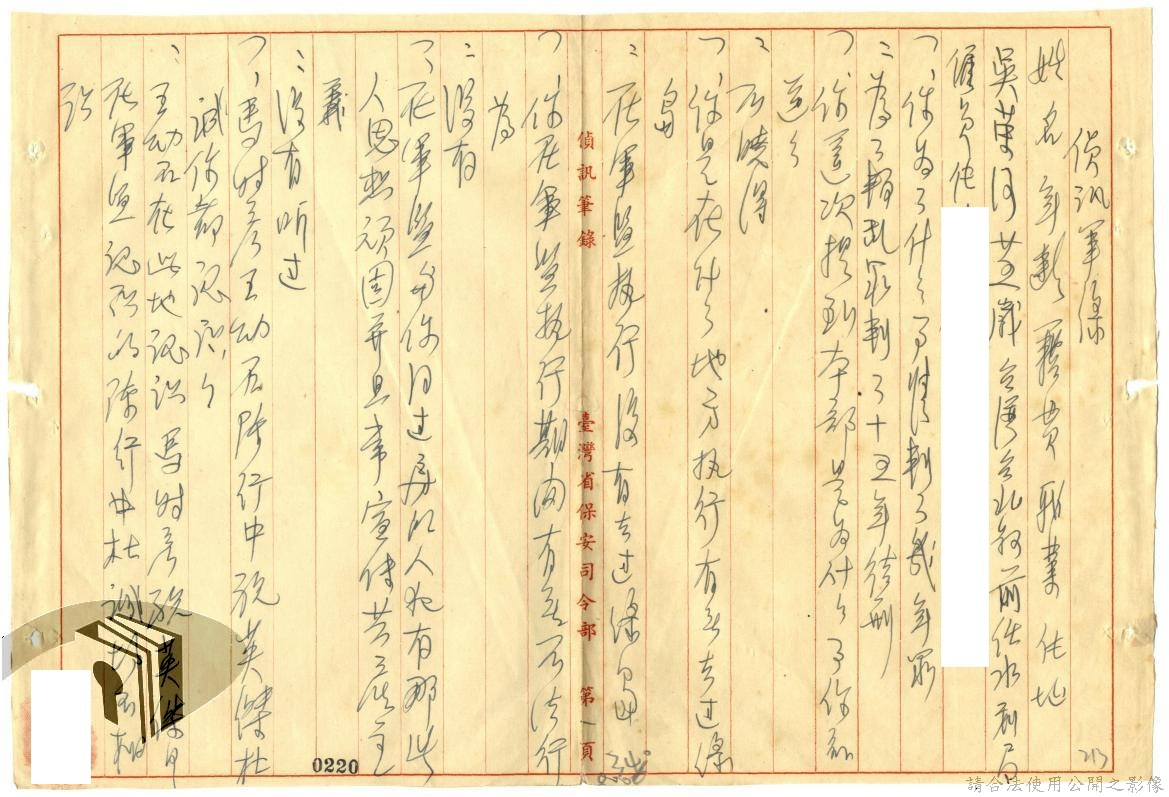 偵訊筆錄
姓名年齡籍貫職業住地
吳 歲台灣台北 前任水利局
雇員住
一、你為了什么事情判了幾年罪
二為了叛亂罪判了十五年徒刑
一、你這次提到本部是為什么事你知
道么
二不曉得
一、你是在什么地方执行有無去过綠
島
二在軍監执行沒有去过綠島
一、你在軍監执行期內有無不法行
為
二沒有
一、在軍監与你同过房的人犯有那些
人思想頑固并且常宣传共產主
義
二沒有听过
一、馬時彥王幼石陳行中祝英傑杜
誠你都認識么
二王幼石在此地認識馬時彥祝英傑
在軍監認識的陳行中杜誠
識
偵訊筆錄 臺灣省保安司令部 第一頁
0220
213
請合法使用公開之影像